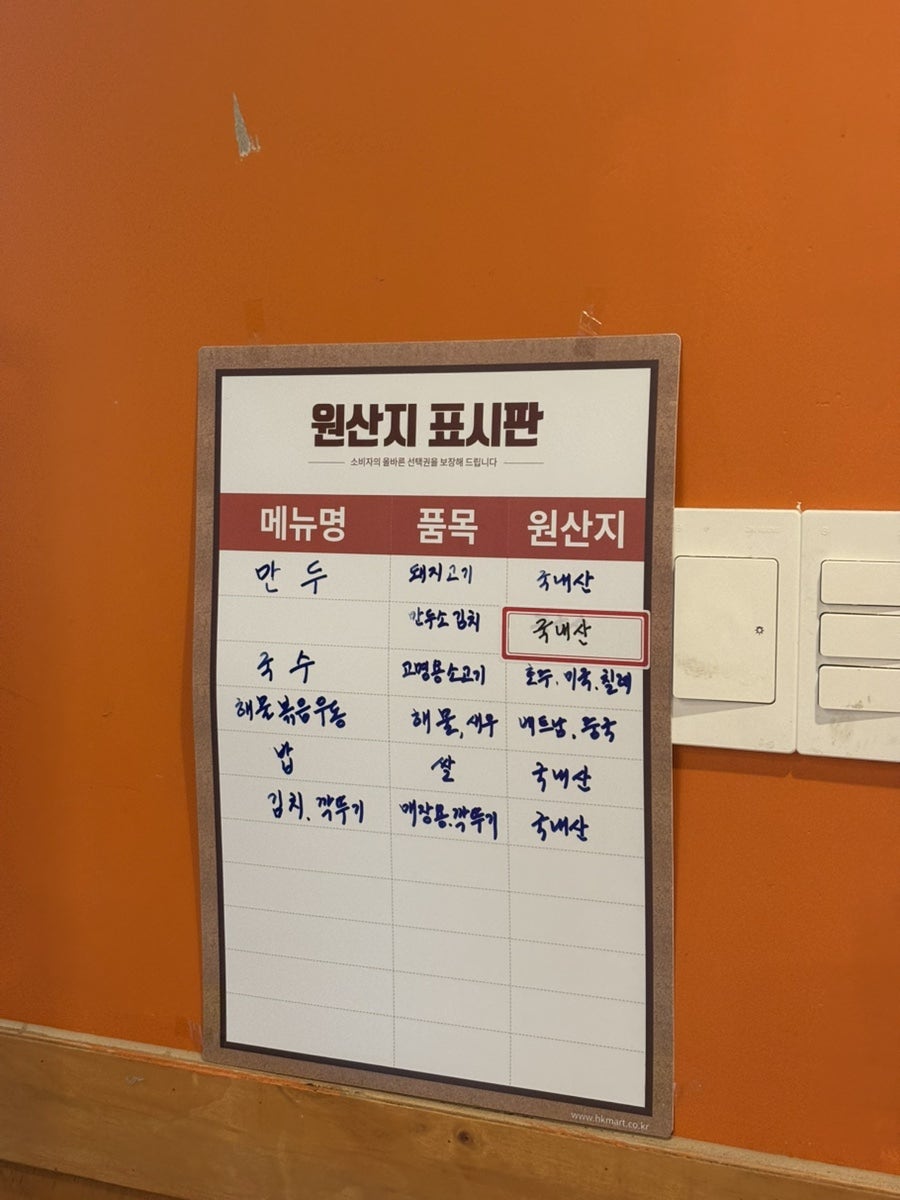 원산지 표시판
소비자의 올바른 선택권을 보장해 드립니다
메뉴명 품목 원산지
만두 돼지고기 국내산
만두소 김치 국내산
국수 고명용소고기 호주.미국.칠레
해물볶음우동 해물,새우 베트남,중국
밥 쌀 국내산
김치,깍뚜기 매장용.깍뚜기 국내산
www.hkmart.co.kr